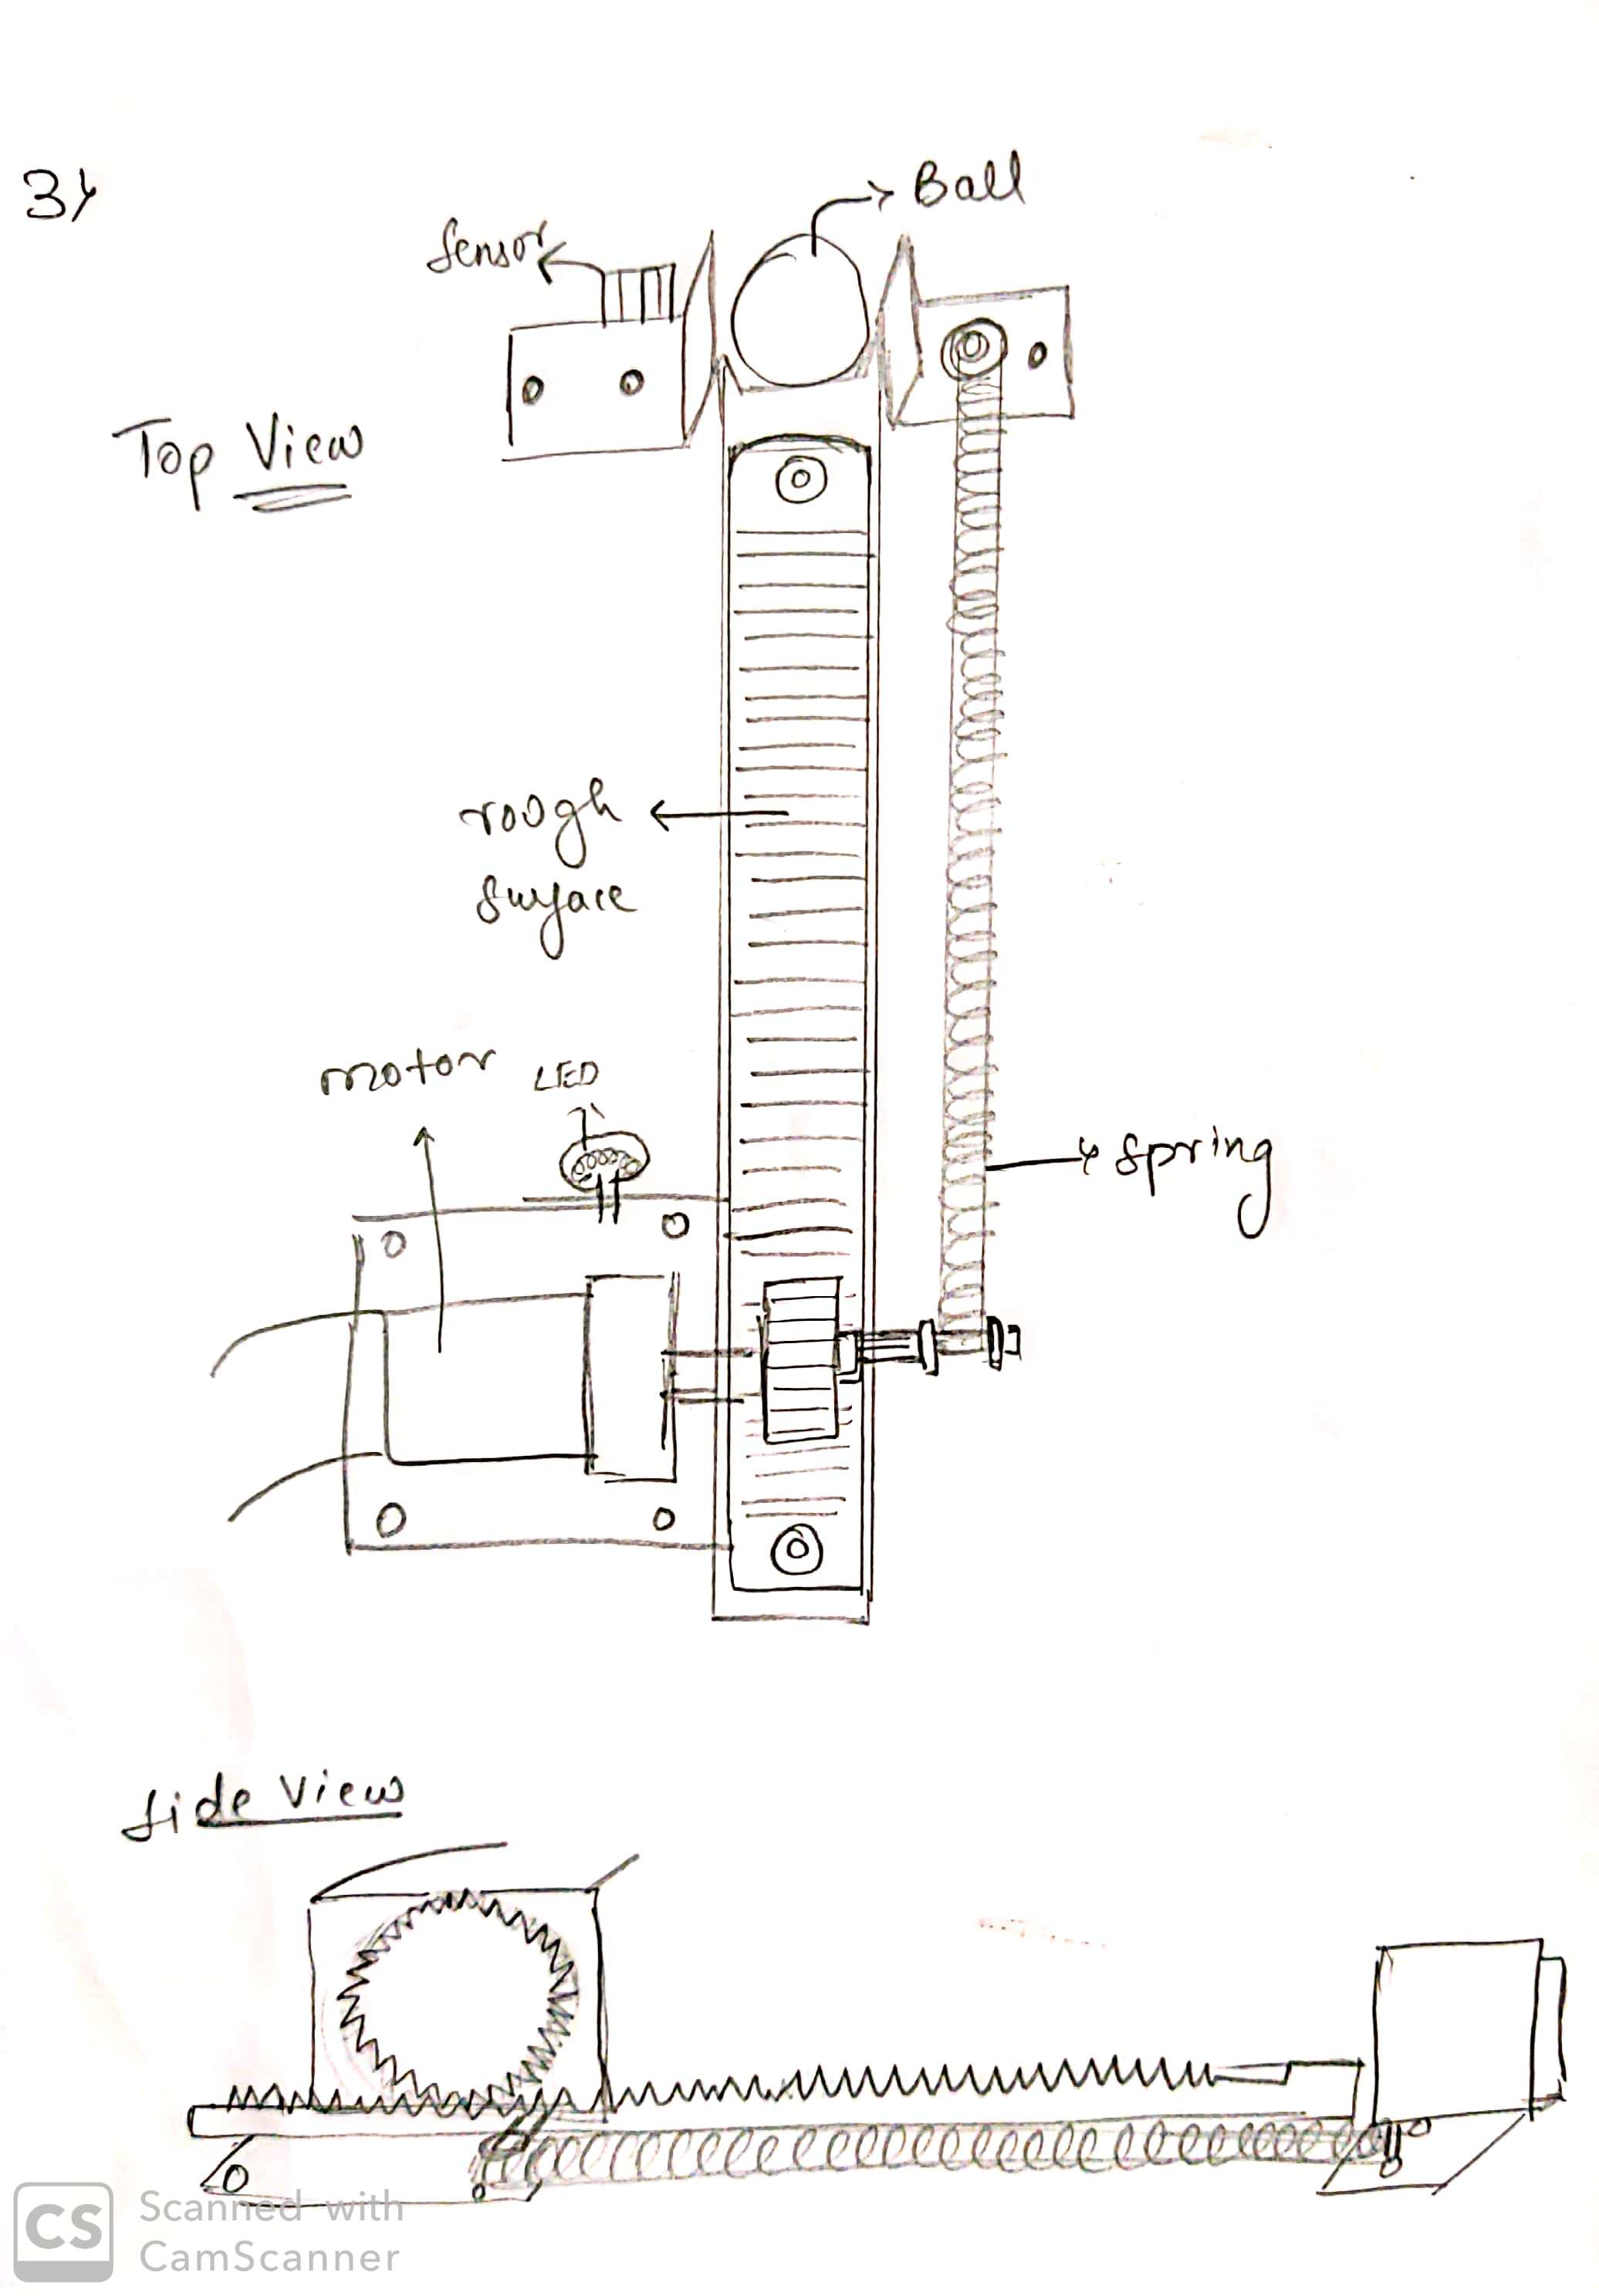 3)
Ball
Sensor
Top View
rough
surface
motor
LED
spring
Side View
CS
Scanned with
CamScanner